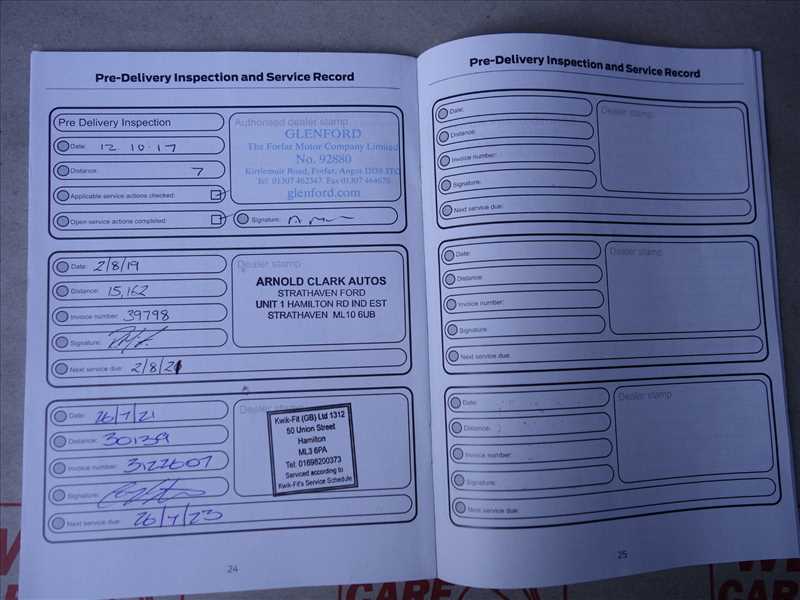 Pre-Delivery Inspection and Service Record
Pre Delivery Inspection
Date: 12 10 17
Distance: 7
Applicable service actions checked:
Open service actions completed:
Authorised dealer stamp
GLENFORD
The Forfar Motor Company Limited
No. 92880
Kirriemuir Road, Forfar, Angus DD8 3TC
Tel: 01307 462347 Fax 01307 464676
glenford.com
Signature:
Date: 2/8/19
Distance: 15,162
Invoice number: 39798
Signature:
Next service due: 2/8/21
Dealer stamp
ARNOLD CLARK AUTOS
STRATHAVEN FORD
UNIT 1 HAMILTON RD IND EST
STRATHAVEN ML10 6UB
Date: 26/7/21
Distance: 30139
Invoice number: 3122607
Signature:
Next service due: 26/7/23
Dealer stamp
Kwik-Fit (GB) Ltd 1312
50 Union Street
Hamilton
ML3 6PA
Tel: 01698200373
Serviced according to
Kwik-Fit's Service Schedule
24
Pre-Delivery Inspection and Service Record
Date:
Distance:
Invoice number:
Signature:
Next service due:
Dealer stamp
Date:
Distance:
Invoice number:
Signature:
Next service due:
Dealer stamp
Date:
Distance:
Invoice number:
Signature:
Next service due:
Dealer stamp
25
CARE
CARE